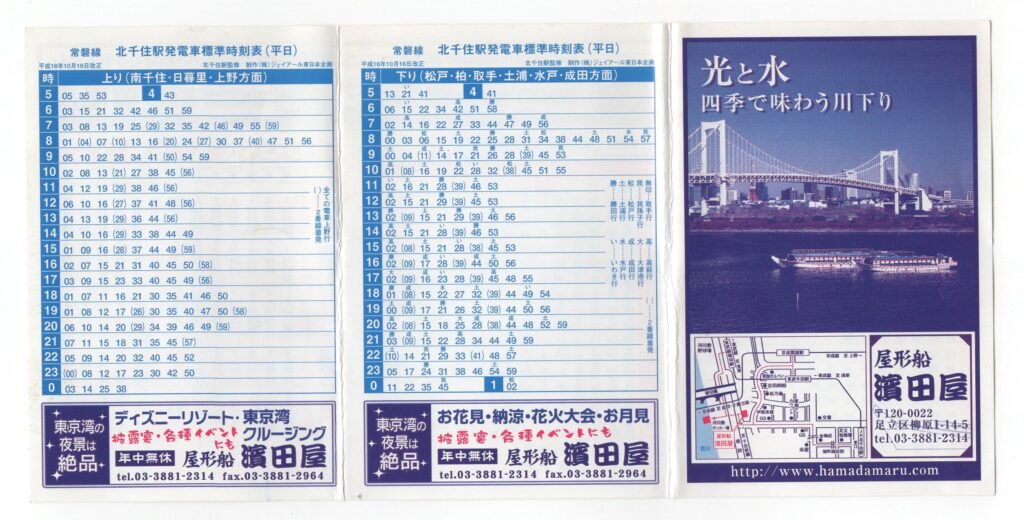 常磐線 北千住駅発電車標準時刻表(平日)
平成16年10月16日改正 北千住駅監修 制作(株)ジェイアール東日本企画
時 上り(南千住・日暮里・上野方面)
5 05 35 53 4 43
6 03 15 21 32 42 46 51 59
7 03 08 13 19 25 (29) 32 35 42 (46) 49 55 (59)
8 01 (04) 07 (10) 13 16 (20) 24 (27) 30 37 (40) 47 51 56
9 05 10 22 28 34 41 (50) 54 59
10 02 08 13 (21) 27 38 45 (56)
11 04 12 19 (29) 38 46 (56)
12 06 10 16 (27) 37 41 48 (56)
13 04 13 19 (29) 36 44 (56)
14 04 10 16 (29) 33 38 44 49
15 01 09 16 (28) 37 44 49 (59)
16 02 07 15 21 31 40 45 50 (58)
17 03 09 15 23 33 40 45 49 (56)
18 01 07 11 16 21 30 35 41 46 50
19 01 08 12 17 (26) 30 35 40 47 50 (58)
20 06 10 14 20 (29) 34 39 46 49 (59)
21 07 11 15 18 31 35 45 (57)
22 05 09 14 20 32 40 45 52
23 (00) 08 12 17 23 30 42 50
0 03 14 25 38
全ての電車上野行
( )……2番線着発
東京湾の
夜景は
絶品
ディズニーリゾート・東京湾
クルージング
披露宴・各種イベントにも
年中無休 屋形船 濱田屋
tel.03-3881-2314 fax.03-3881-2964
常磐線 北千住駅発電車標準時刻表(平日)
平成16年10月16日改正 北千住駅監修 制作(株)ジェイアール東日本企画
時 下り(松戸・柏・取手・土浦・水戸・成田方面)
5 13 21 41 4 41
6 06 15 22 34 42 51 58
7 02 14 16 22 27 33 44 47 49 56
8 00 03 06 15 19 22 25 28 31 34 38 44 48 51 54 57
9 00 04 (11) 14 17 21 26 28 (39) 45 53
10 01 (08) 16 19 22 28 32 (38) 45 51 55
11 02 16 21 28 (39) 46 53
12 02 15 21 29 (39) 45 53
13 02 (09) 15 21 29 (39) 46 56
14 02 15 21 28 (39) 45 53
15 02 (08) 15 21 28 (39) 45 53
16 02 (09) 17 28 (39) 44 50 56
17 02 (09) 16 23 28 (39) 45 48 55
18 01 (08) 15 22 27 32 (39) 44 49 54
19 00 (09) 17 21 26 32 (39) 44 50 56
20 02 (08) 15 18 25 28 (38) 44 48 52 59
21 03 (09) 15 22 28 34 44 49 59
22 (10) 14 21 29 33 (41) 48 57
23 05 17 24 31 38 46 54 59
0 11 22 35 45 1 02
無印……取手行
我……我孫子行
松……松戸行
土……土浦行
勝……勝田行
高……高萩行
大……大津港行
成……成田行
水……水戸行
い……いわき行
( )……2番線着発
東京湾の
夜景は
絶品
お花見・納涼・花火大会・お月見
披露宴・各種イベントにも
年中無休 屋形船 濱田屋
tel.03-3881-2314 fax.03-3881-2964
光と水
四季で味わう川下り
屋形船
濱田屋
〒120-0022
足立区柳原1-14-5
tel.03-3881-2314
http://www.hamadamaru.com